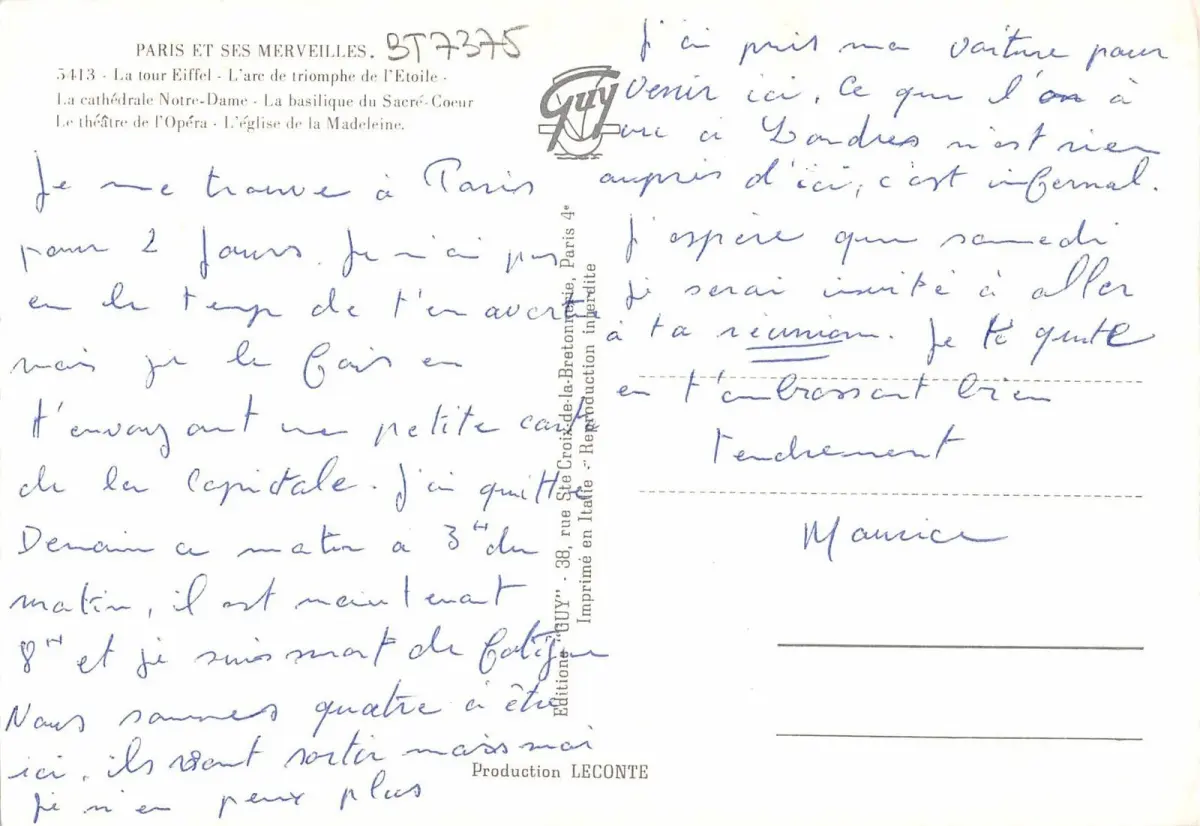 PARIS ET SES MERVEILLES. BT7375
5413 - La tour Eiffel - L'arc de triomphe de l'Etoile -
La cathédrale Notre-Dame - La basilique du Sacré-Coeur
Le théâtre de l'Opéra - L'église de la Madeleine.
Je me trouve à Paris
pour 2 Jours. Je n'ai pas
eu le temps de t'en avertir
mais je le fais en
t'envoyant une petite carte
de la Capitale. J'ai quitté
Demain ce matin à 3H du
matin, il est maintenant
8H et je suis mort de fatigue
Nous sommes quatre à être
ici, ils vont sortir mais moi
je n'en peux plus
Guy
Editions "GUY" - 38, rue Ste Croix-de-la-Bretonnerie, Paris 4e
Imprimé en Italie - Reproduction interdite
Production LECONTE
J'ai pris ma voiture pour
venir ici. Ce que l'on à
vu à Londres n'est rien
auprès d'ici, c'est infernal.
J'espère que samedi
je serai invité à aller
à ta réunion. Je te quitte
en t'embrassant bien
tendrement
Maurice